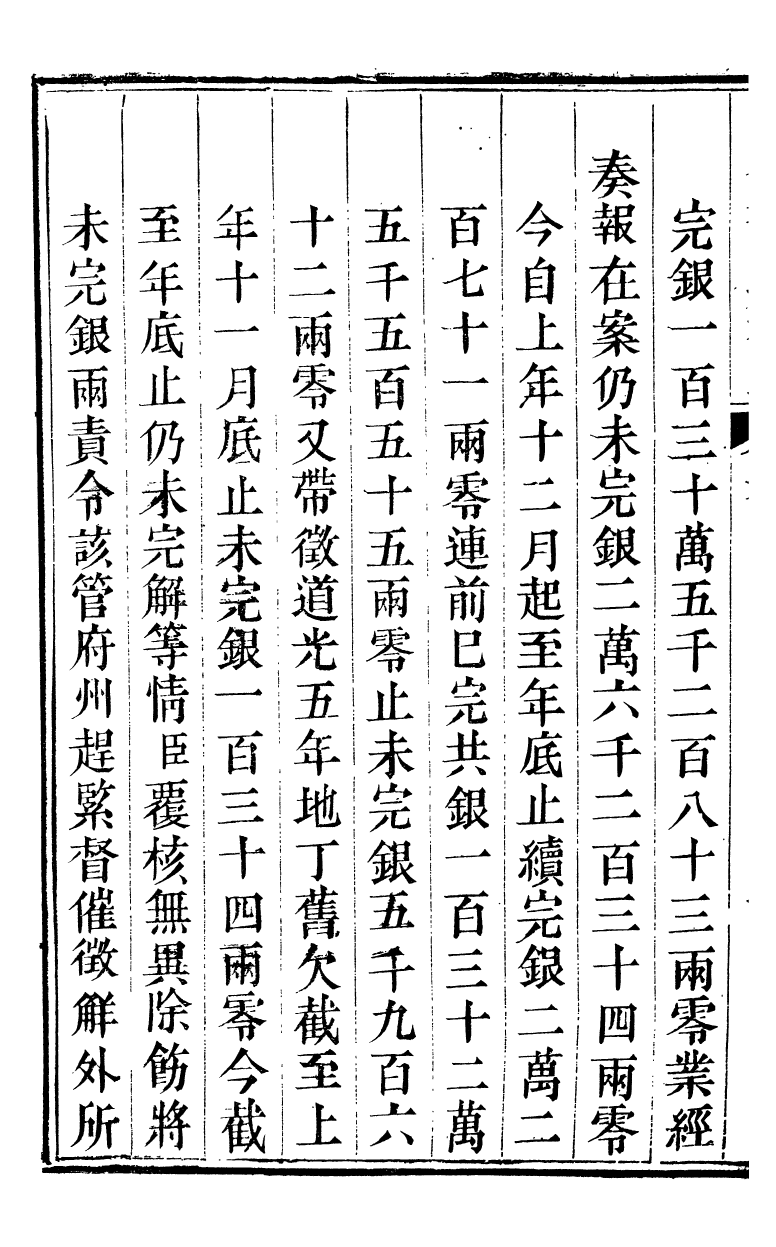 完銀一百三十萬五千二百八十三兩零業經
奏報在案仍未完銀二萬六千二百三十四兩零
今自上年十二月起至年底止續完銀二萬二
百七十一兩零連前巳完共銀一百三十二萬
五千五百五十五兩零止未完銀五千九百六
十二兩零又帶徵道光五年地丁舊欠截至上
年十一月底止未完銀一百三十四兩零今截
至年底止仍未完解等情臣覆核無異除飭將
未完銀兩責令該管府州趕緊督催徵解外所